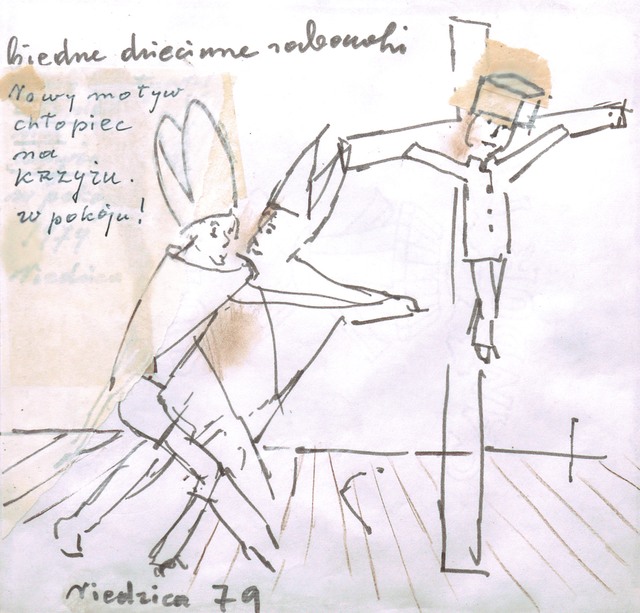 biedne dziecinne
Nowy motyw
chłopiec
na
krzyżu.
w pokoju!
Niedzica 79